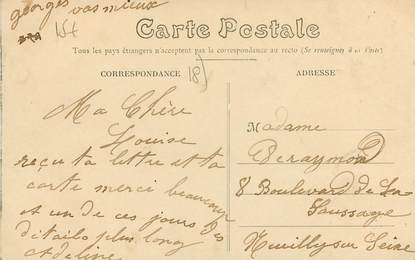 georges vas mieux
15f
Carte Postale
Tous les pays étrangers n'acceptent pas la correspondance au recto (Se renseigner à la Poste)
CORRESPONDANCE
18
ADRESSE
Ma Chère
Louise
reçu ta lettre et ta
carte merci beaucoup
et un de ces jours des
details plus long
Adeline
Madame
Deraymond
8 Boulevard de La
Saussaye
Neuilly sur Seine